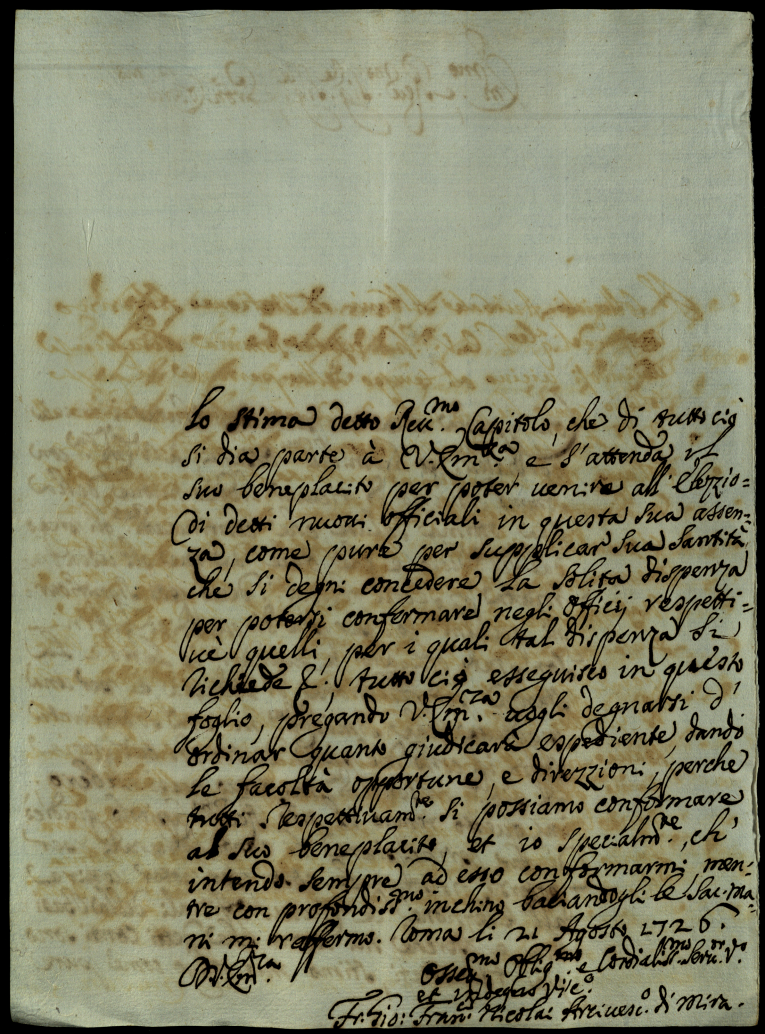 Lo stima detto Reu.mo Capitolo, che di tutto ciò
si dia parte à V. Em.za e s'attenda il
suo beneplacito per poter uenire all' Elezzio=
di detti nuoui officiali in questa sua assen=
za, come pure per supplicar sua Santità
che si degni concedere la solita dispenza
per potersi confermare negli Officij respetti=
uè quelli, per i quali tal dispenza si
richiede tutto ciò esseguisco in questo
foglio, pregando V. Em.za uogli degnarsi d'
ordinar quanto giudicarà espediente, dando
le facoltà opportune, e direzzioni, perche
tutti respettiuam.te si possiamo conformare
al suo beneplacito, et io specialm.te, ch'
intendo sempre ad esso conformarmi, men=
tre con profondiss.mo inchino baciandogli le Sac. ma=
ni mi raffermo. Roma li 21 Agosto 1726.
D. V. Em.za
Osseq.mo Oblig.mo e Cordialiss.mo Seru.or V.o
et
Fr. Gio: Fran.o Nicolai Arciuesc.o di Mira.